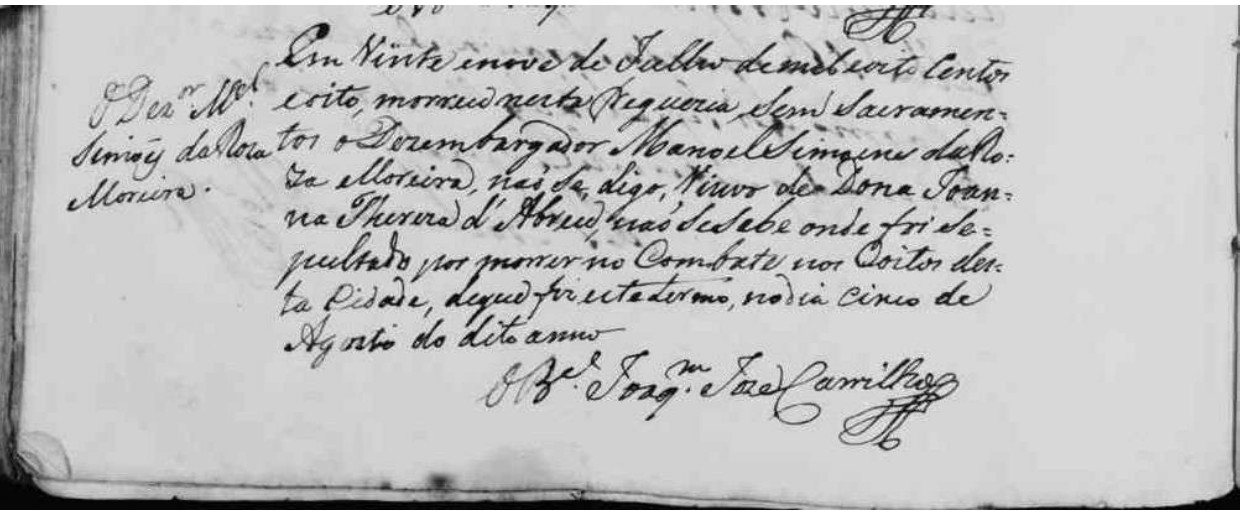 O Dez.or M.el
Simoẽs da Roza
Moreira.
Em Vinte e nove de Julho de mil e oito Centos
e oito, morreu nesta Freguezia, sem Sacramen=
tos o Dezembargador Manoel Simoens da Ro=
za Moreira, naõ se, digo, Viuvo de Dona Joan=
na Thereza d'Abreu, naõ se sabe onde foi se=
pultado por morrer no Combate nos Coitos des=
ta Cidade, de que fiz este termo, no dia cinco de
Agosto do dito anno
O B.el Joaq.m Jozé Carrilho